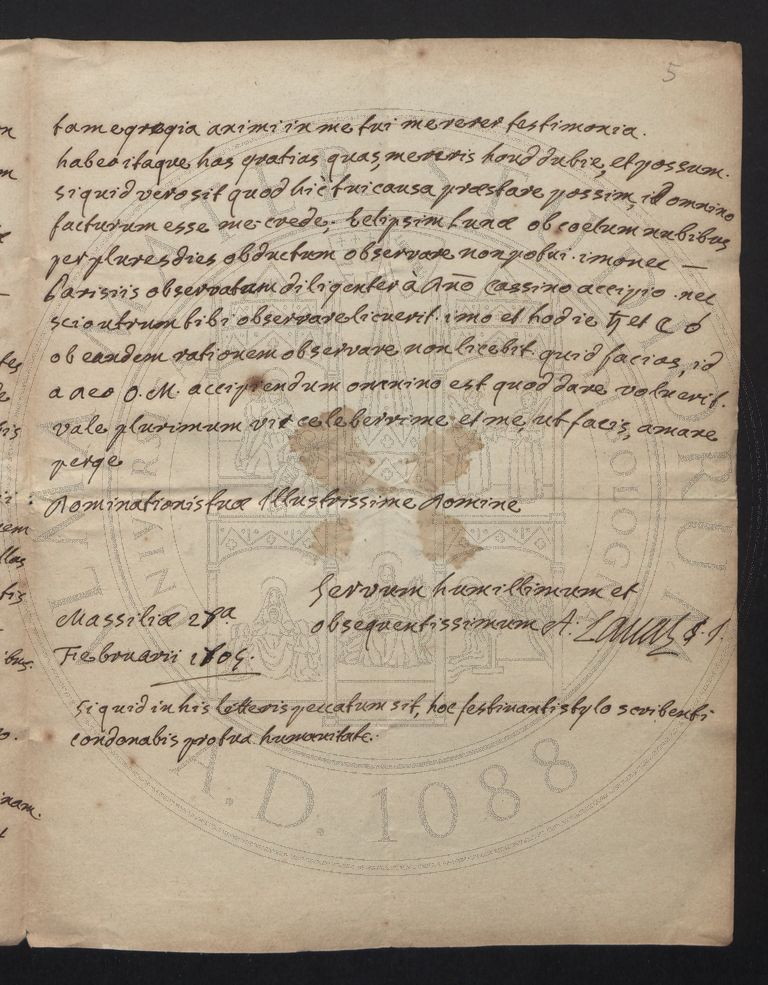 5
tam egregia animi in me tui mererer testimonia.
habeo itaque has gratias quas mereris haud dubie, et possum.
si quid vero sit quod hîc tui causa præstare possim, id omnino
facturum esse me crede; Eclipsim lunæ ob coelum nubibus
per plures dies obductum observare non potui. imo nec —
Parisiis observatam diligenter à Dño Cassino accipio. nec
scio utrum tibi observare licuerit. imo et hodie ♄ et ☾ ☌
ob eandem rationem observare non licebit. quid facias, id
a Deo O. M. accipiendum omnino est quod dare voluerit.
vale plurimum vir celeberrime et me, ut facis, amare
perge
Dominationis tuæ Illustrissime Domine
Servum humillimum et
Massiliæ 27a. obsequentissimum A: Laval S. J.
Februarii 1705.
Si quid in his litteris peccatum sit, hoc festinanti stylo scribenti
condonabis pro tua humanitate.
ALMA MATER STUDIORUM
UNIVERSITÀ DI BOLOGNA
A.D. 1088